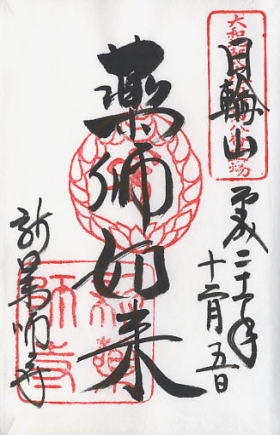 日輪山
平成二十二年
十二月五日
薬師如来
新薬師寺
新薬師寺